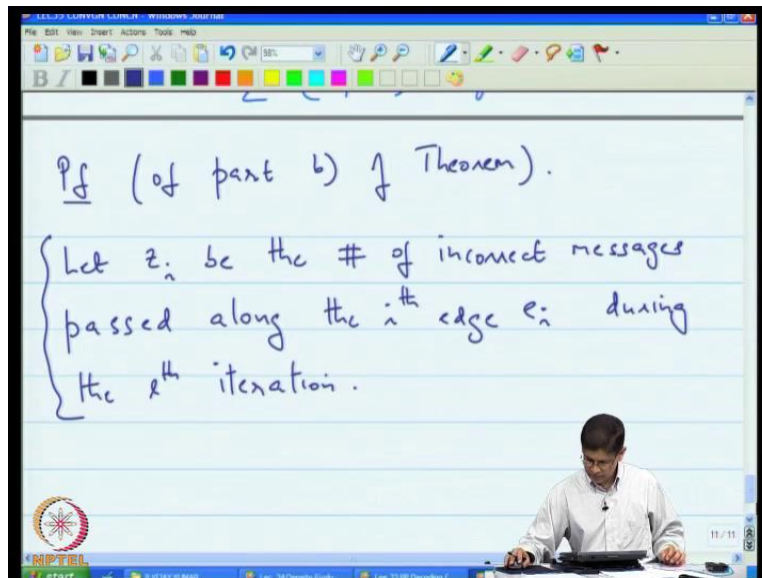 LEC35 CONVGN CONCN - Windows Journal
File Edit View Insert Actions Tools Help
98%
B I
Pf (of part b) of Theorem).
Let z_i be the # of incorrect messages
passed along the i^th edge e_i during
the l^th iteration.
11/11
NPTEL
start